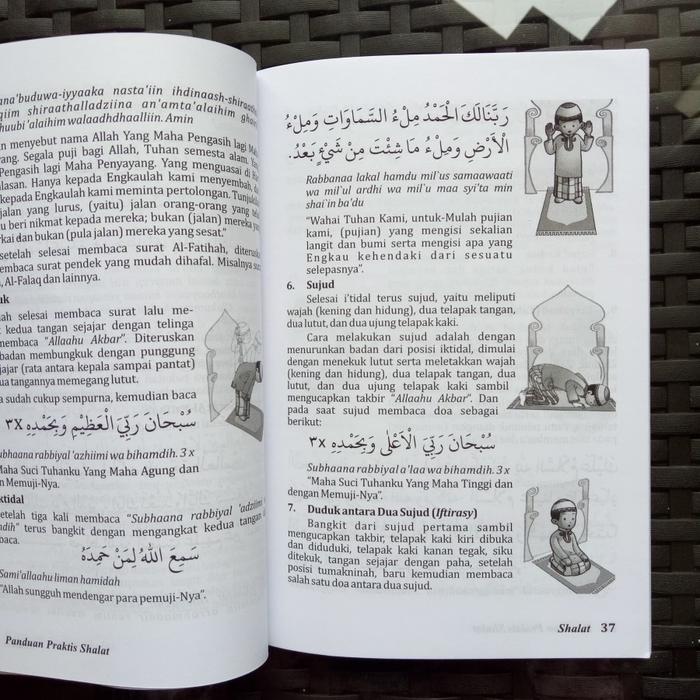 ana'buduwa-iyyaaka nasta'iin ihdinaash-shiraath
qiim shiraathalladziina an'amta'alaihim
huubi 'alaihim walaadhdhaalliin. Amin
n menyebut nama Allah Yang Maha Pengasih lagi
yang. Segala puji bagi Allah, Tuhan semesta alam.
Pengasih lagi Maha Penyayang. Yang menguasai di
lasan. Hanya kepada Engkaulah kami menyembah,
kepada Engkaulah kami meminta pertolongan.
jalan yang lurus, (yaitu) jalan orang-orang yang
u beri nikmat kepada mereka; bukan (jalan) mereka
rkai dan bukan (pula jalan) mereka yang sesat."
setelah selesai membaca surat Al-Fatihah, diterus
embaca surat pendek yang mudah dihafal. Misalnya
, Al-Falaq dan lainnya.
uk
lah selesai membaca surat lalu me-
t kedua tangan sejajar dengan telinga
membaca "Allaahu Akbar". Diteruskan
badan membungkuk dengan punggung
jajar (rata antara kepala sampai pantat)
ua tangannya memegang lutut.
a sudah cukup sempurna, kemudian baca
سُبْحَانَ رَبِّيَ الْعَظِيْمِ وَبِحَمْدِهِ ٣X
ubhaana rabbiyal 'azhiimi wa bihamdih. 3 x
Maha Suci Tuhanku Yang Maha Agung dan
n Memuji-Nya.
ktidal
etelah tiga kali membaca "Subhaana rabbiyal 'adziimi
ndih" terus bangkit dengan mengangkat kedua tangan
baca.
سَمِعَ اللهُ لِمَنْ حَمِدَهُ
Sami'allaahu liman hamidah
"Allah sungguh mendengar para pemuji-Nya".
Panduan Praktis Shalat
رَبَّنَا لَكَ الْحَمْدُ مِلْءُ السَّمَاوَاتِ وَمِلْءُ
الْأَرْضِ وَمِلْءُ مَا شِئْتَ مِنْ شَيْءٍ بَعْدُ.
Rabbanaa lakal hamdu mil'us samaawaati
wa mil'ul ardhi wa mil'u maa syi'ta min
shai'in ba'du
"Wahai Tuhan Kami, untuk-Mulah pujian
kami, (pujian) yang mengisi sekalian
langit dan bumi serta mengisi apa yang
Engkau kehendaki dari sesuatu
selepasnya".
6. Sujud
Selesai i'tidal terus sujud, yaitu meliputi
wajah (kening dan hidung), dua telapak tangan,
dua lutut, dan dua ujung telapak kaki.
Cara melakukan sujud adalah dengan
menurunkan badan dari posisi iktidal, dimulai
dengan menekuk lutut serta meletakkan wajah
(kening dan hidung), dua telapak tangan, dua
lutut, dan dua ujung telapak kaki sambil
mengucapkan takbir "Allaahu Akbar". Dan
pada saat sujud membaca doa sebagai
berikut:
سُبْحَانَ رَبِّيَ الْأَعْلَى وَبِحَمْدِهِ ٣X
Subhaana rabbiyal a'laa wa bihamdih. 3 x
"Maha Suci Tuhanku Yang Maha Tinggi dan
dengan Memuji-Nya".
7. Duduk antara Dua Sujud (Iftirasy)
Bangkit dari sujud pertama sambil
mengucapkan takbir, telapak kaki kiri dibuka
dan diduduki, telapak kaki kanan tegak, siku
ditekuk, tangan sejajar dengan paha, setelah
posisi tumakninah, baru kemudian membaca
salah satu doa antara dua sujud.
Shalat 37